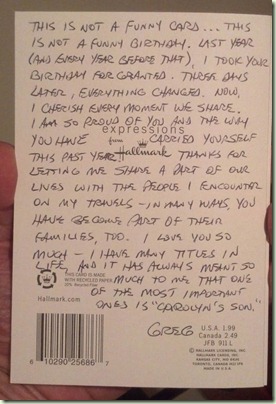 THIS IS NOT A FUNNY CARD... THIS
IS NOT A FUNNY BIRTHDAY. LAST YEAR
(AND EVERY YEAR BEFORE THAT), I TOOK YOUR
BIRTHDAY FOR GRANTED. THREE DAYS
LATER, EVERYTHING CHANGED. NOW,
I CHERISH EVERY MOMENT WE SHARE.
I AM SO PROUD OF YOU AND THE WAY
expressions
YOU HAVE CARRIED YOURSELF
from
Hallmark
THIS PAST YEAR. THANKS FOR
LETTING ME SHARE A PART OF OUR
LIVES WITH THE PEOPLE I ENCOUNTER
ON MY TRAVELS - IN MANY WAYS, YOU
HAVE BECOME PART OF THEIR
FAMILIES, TOO. I LOVE YOU SO
MUCH - I HAVE MANY TITLES IN
LIFE, AND IT HAS ALWAYS MEANT SO
MUCH TO ME THAT ONE
OF THE MOST IMPORTANT
ONES IS "CAROLYN'S SON."
GREG
THIS CARD IS MADE
WITH RECYCLED PAPER
Hallmark.com
U.S.A. 1.99
Canada 2.49
JFB 911 L
© HALLMARK LICENSING, INC.
HALLMARK CARDS, INC.
KANSAS CITY, MO 64141
TORONTO, CANADA M2J 1P6
MADE IN U.S.A.
6 10290 25686 7